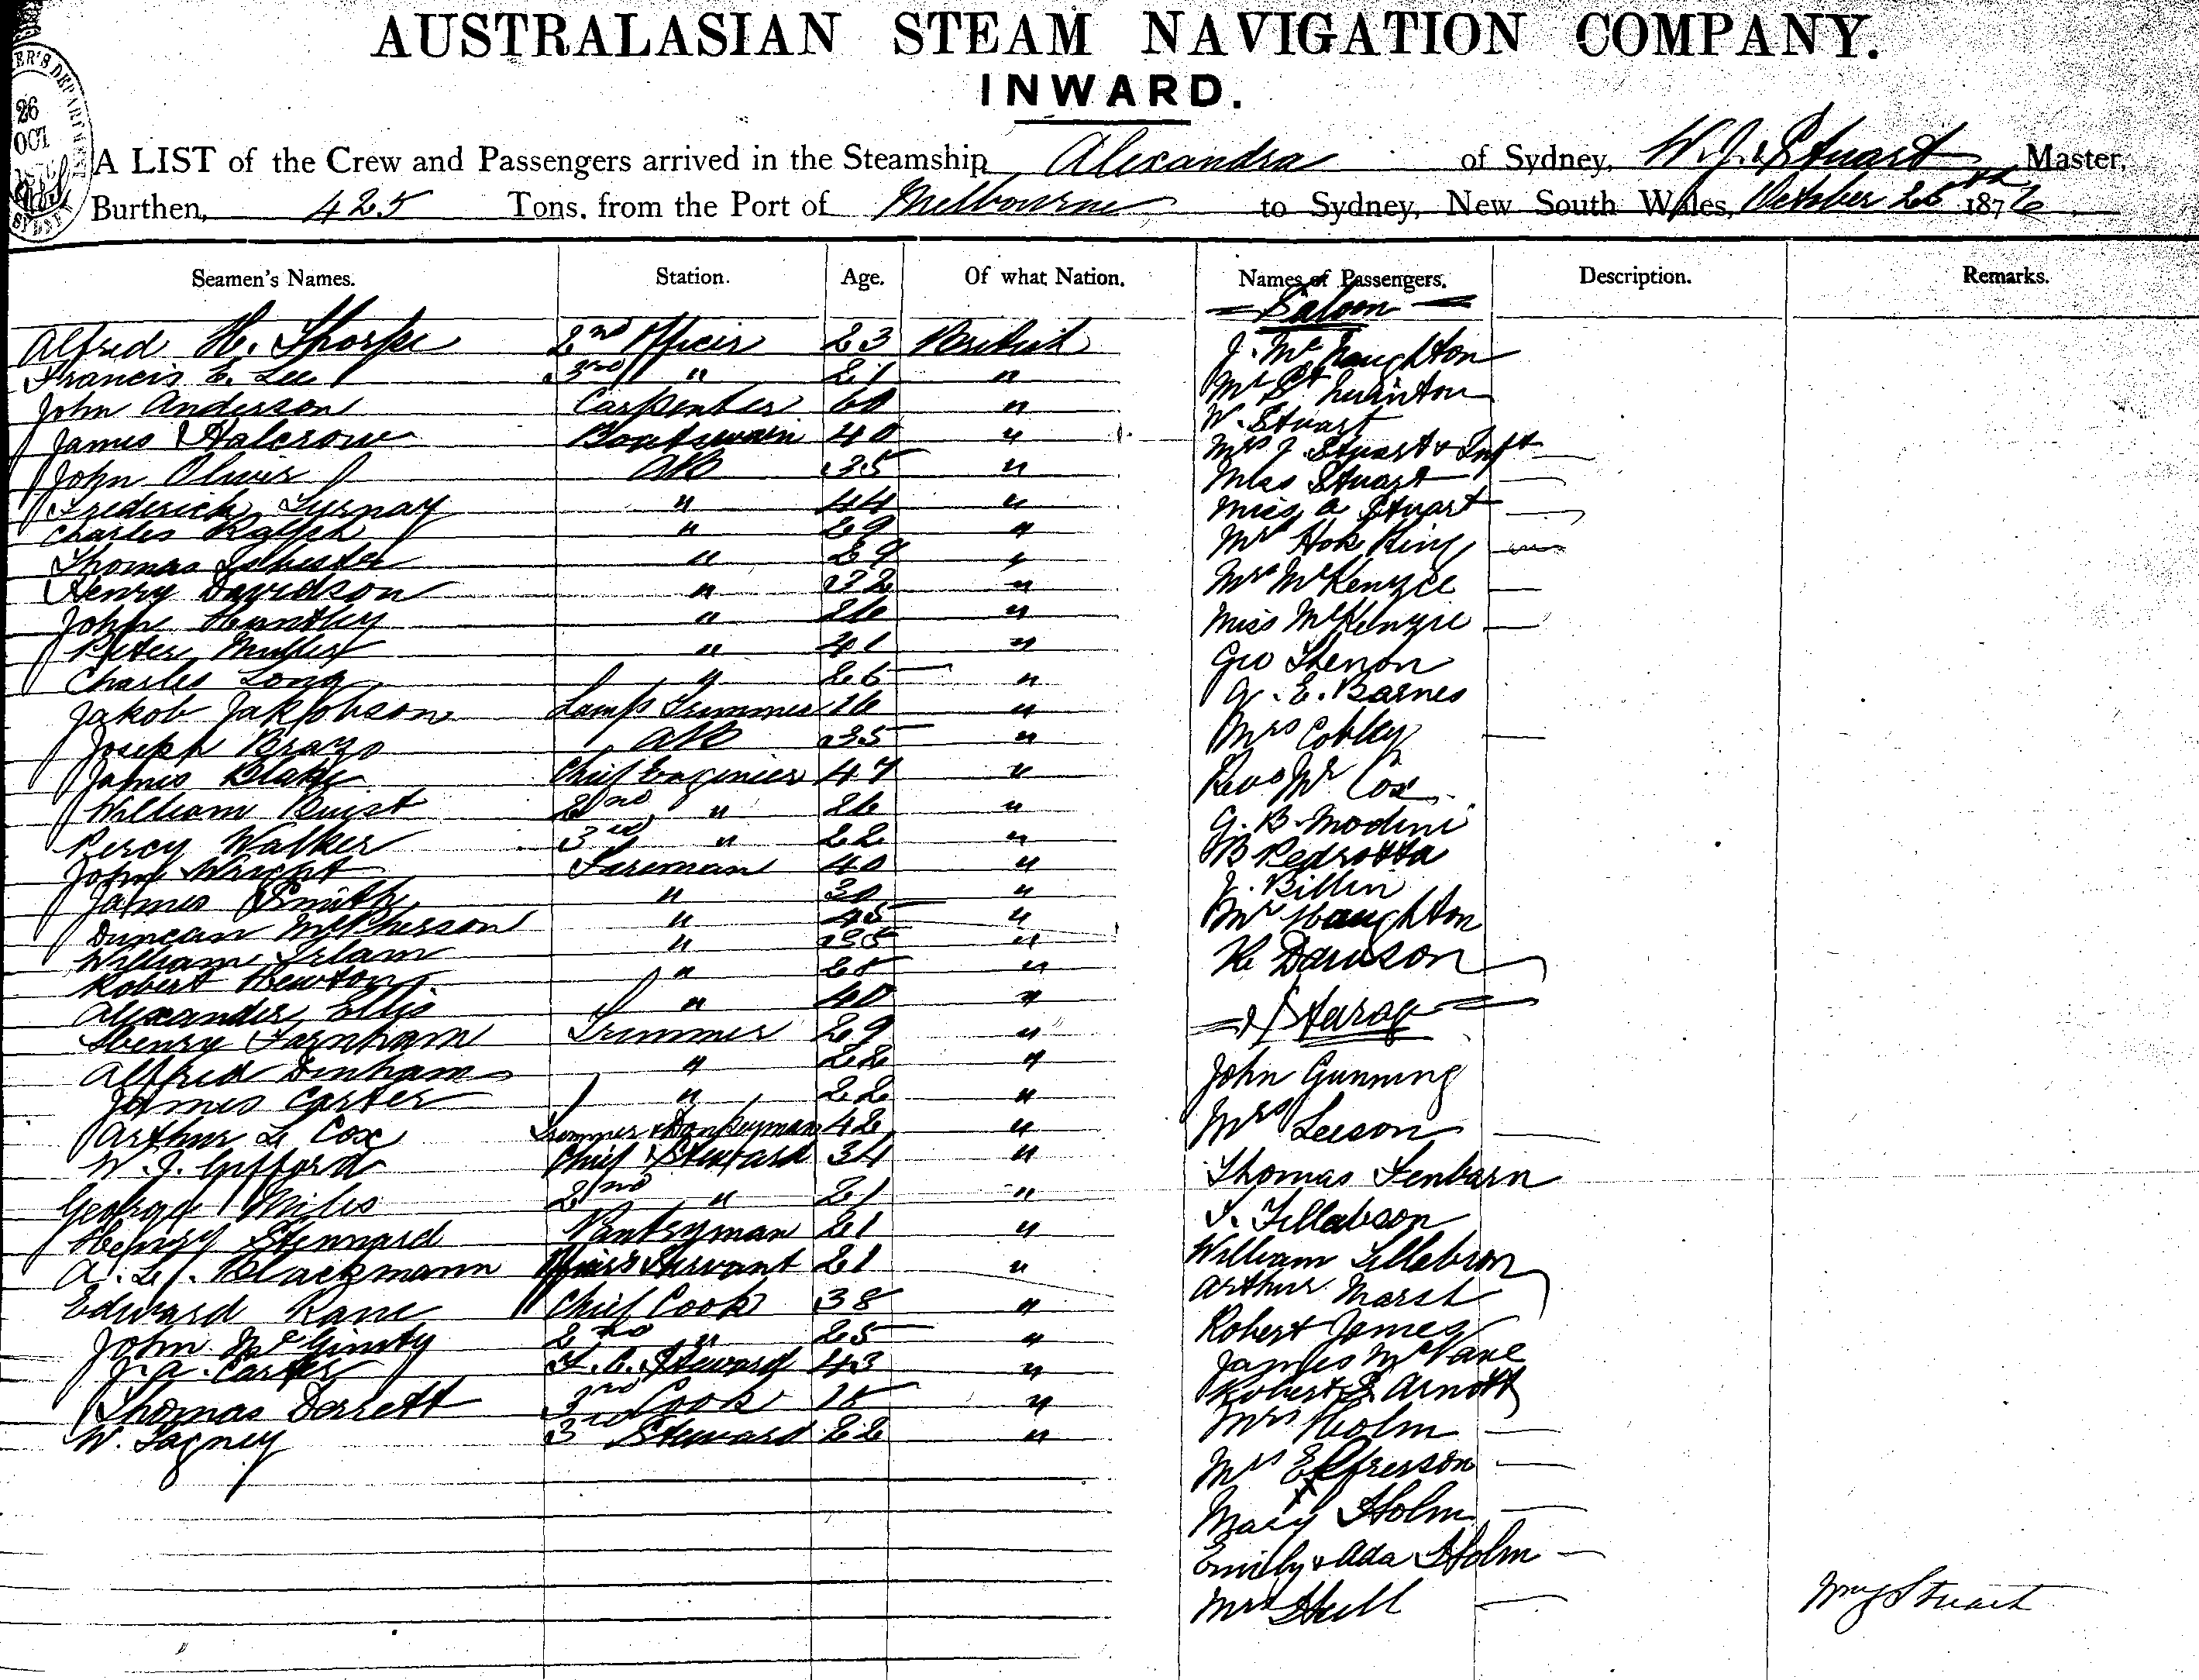 AUSTRALASIAN STEAM NAVIGATION COMPANY.
INWARD.
26
OCT
SYDNEY
A LIST of the Crew and Passengers arrived in the Steamship Alexandra of Sydney, W. J. Stuart Master,
Burthen, 425 Tons, from the Port of Melbourne to Sydney, New South Wales, October 25th 1876
Seamen's Names. Station. Age. Of what Nation. Names of Passengers. Description. Remarks.
Alfred H. Thorpe 2nd Officer 23 British
Francis E. Lee 3rd " 21 "
John Anderson Carpenter 60 "
James Halcrow Boatswain 40 "
John Oliver AB 35 "
Frederick " 44 "
Charles Ralph " 29 "
Thomas " 29 "
Henry Davidson " 32 "
John Huntley " 26 "
Peter Muller " 41 "
Charles Long " 26 "
Jakob Jakobson Lamp Trimmer 16 "
Joseph AB 35 "
James Blake Chief Engineer 47 "
William Buist 2nd " 26 "
Percy Walker 3rd " 22 "
John Wright Fireman 40 "
James Smith " 30 "
Duncan McPherson " 45 "
William Irlam " 35 "
Robert Hewton " 25 "
Alexander Ellis " 40 "
Henry Farnham Trimmer 29 "
Alfred Dinham " 22 "
James Carter " 22 "
Arthur L. Cox Trimmer & Donkeyman 42 "
W. J. Gifford Chief Steward 34 "
George Miles 2nd " 21 "
Henry Stennard Pantryman 21 "
A. L. Blackmann Servant 21 "
Edward Kane Chief Cook 38 "
John McGinity 2nd " 25 "
J. A. Carter Steward 43 "
Thomas Derrett 3rd Cook 15 "
W. Tagney 3rd Steward 22 "
Saloon
J. McNaughton
Mr St Quinton
W. Stuart
Mrs J. Stuart & Inft
Miss Stuart
Miss A Stuart
Mr Hok King
Mrs McKenzie
Miss McKenzie
Geo
E. Barnes
Mrs Cobley
Revd Mr Cox
G. B. Modini
B Pedrotta
J. Billin
Mr Haughton
Davison
Steerage
John Gunning
Mrs Leeson
Thomas Fenbarn
Tillabson
William
Arthur Marsh
Robert James
James McVane
Robert S. Arnott
Mrs Holm
Mrs
Mary Holm
Emily & Ada Holm
Mrs Hull
Wm J Stuart